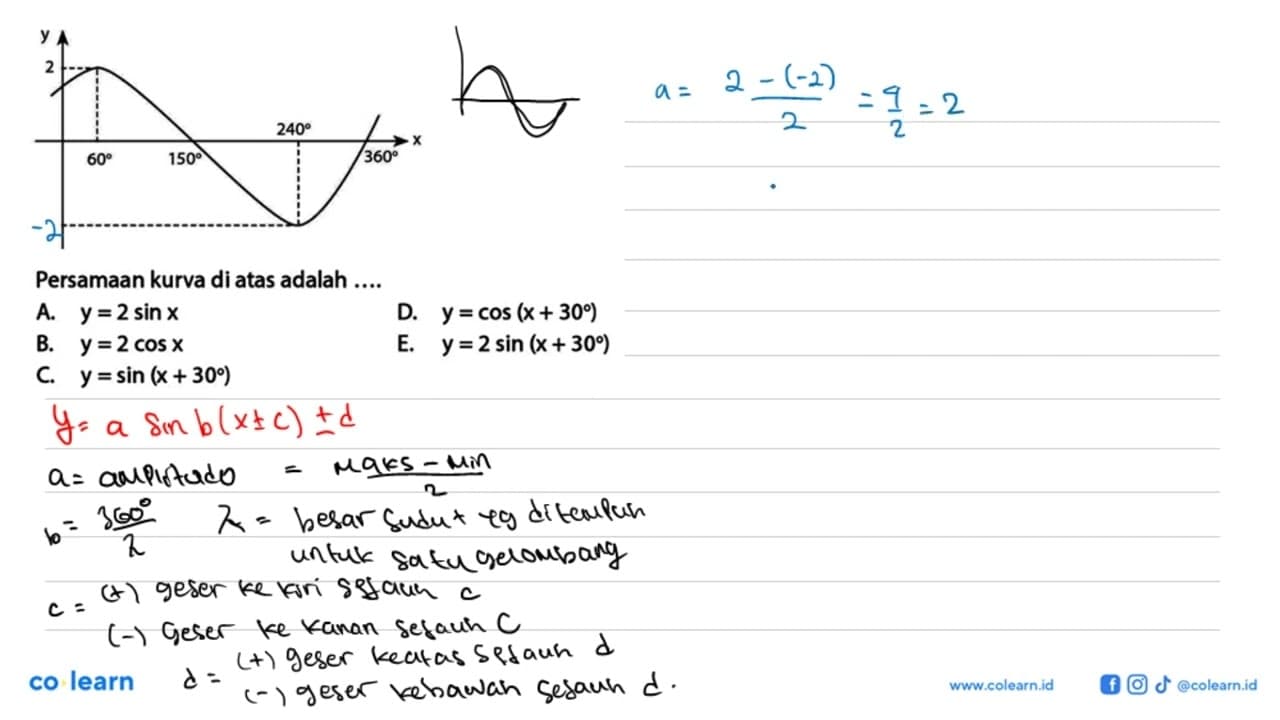 y
2
240°
x
60° 150° 360°
-2
a = 2 - (-2) / 2 = 4/2 = 2
Persamaan kurva di atas adalah ....
A. y = 2 sin x
B. y = 2 cos x
C. y = sin (x + 30°)
D. y = cos (x + 30°)
E. y = 2 sin (x + 30°)
y = a sin b (x ± c) ± d
a = amplitudo = Maks - Min / 2
b = 360° / λ λ = besar sudut yg ditempuh
untuk satu gelombang
c = (+) geser ke kiri sejauh c
(-) Geser ke kanan sejauh C
d = (+) geser keatas sejauh d
(-) geser kebawah sejauh d.
co learn
www.colearn.id @colearn.id